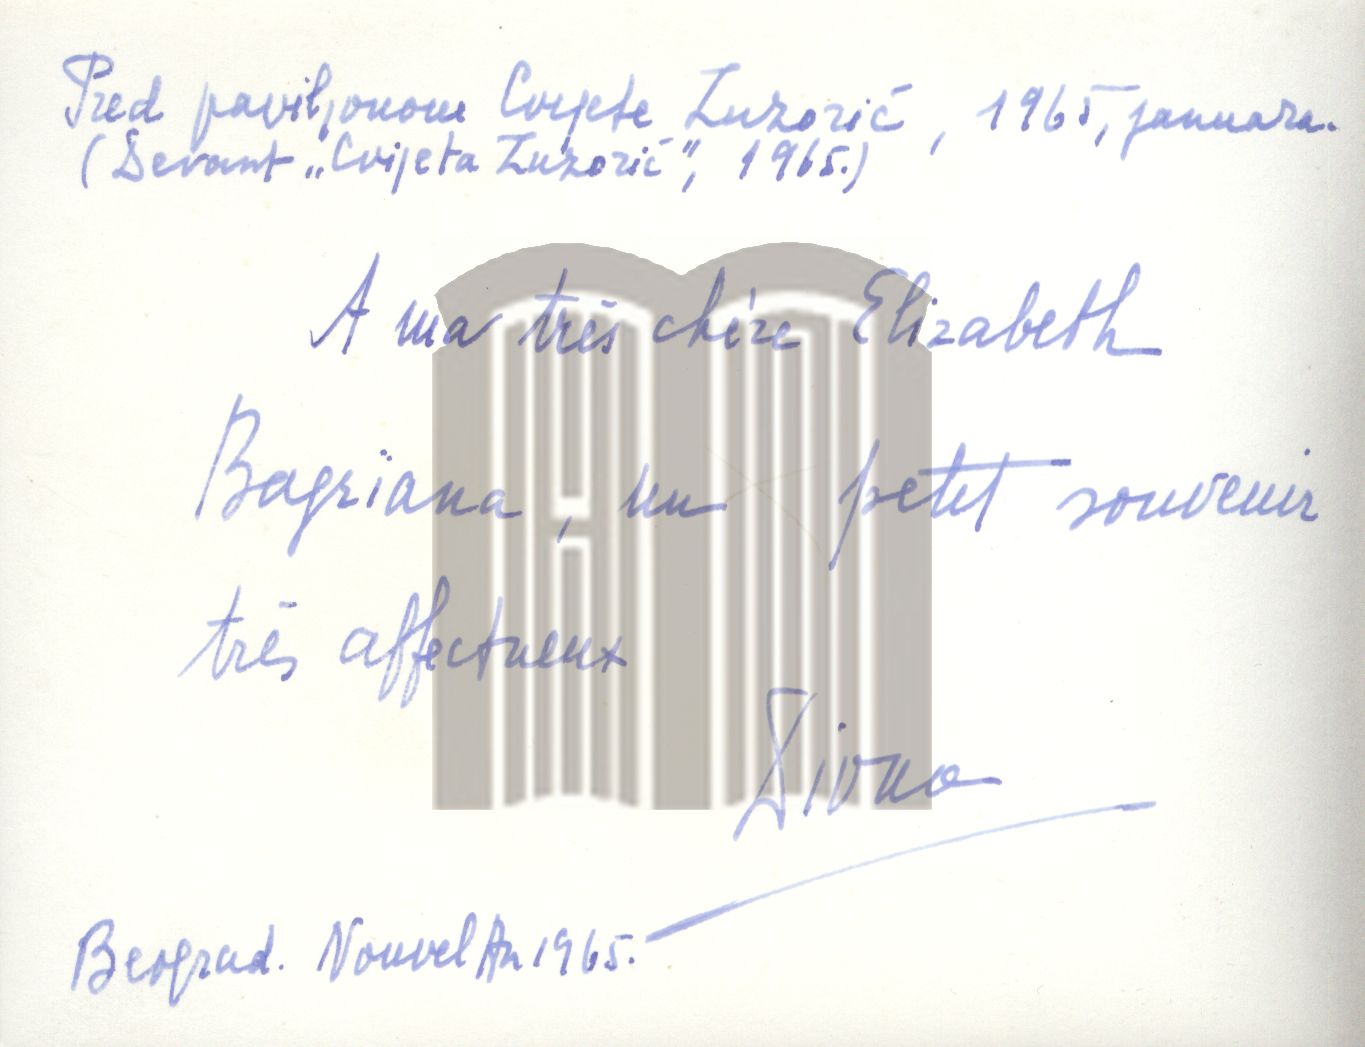 Pred paviljonom Cvijete Zuzorić, 1965, januara.
(Devant „Cvijeta Zuzorić", 1965.)
A ma très chère Elizabeth
Bagriana, un petit souvenir
très affectueux
Divna
Beograd. Nouvel An 1965.